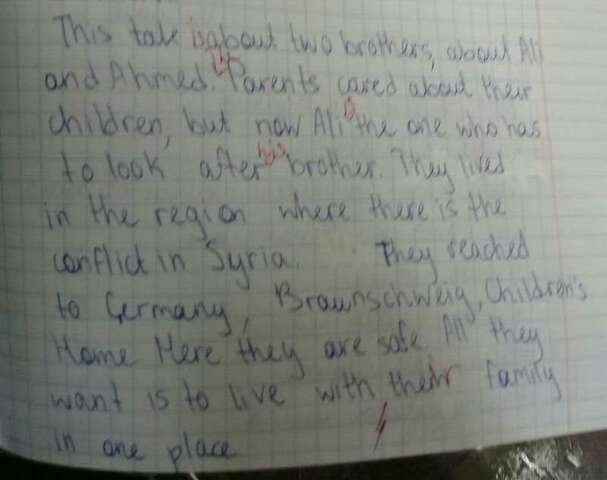 This tale is about two brothers, about Ali
and Ahmed. Parents cared about their
children, but now Ali is the one who has
to look after his brother. They lived
in the region where there is the
conflict in Syria. They reached
to Germany, Braunschweig, Children's
Home Here they are safe All they
want is to live with their family
in one place